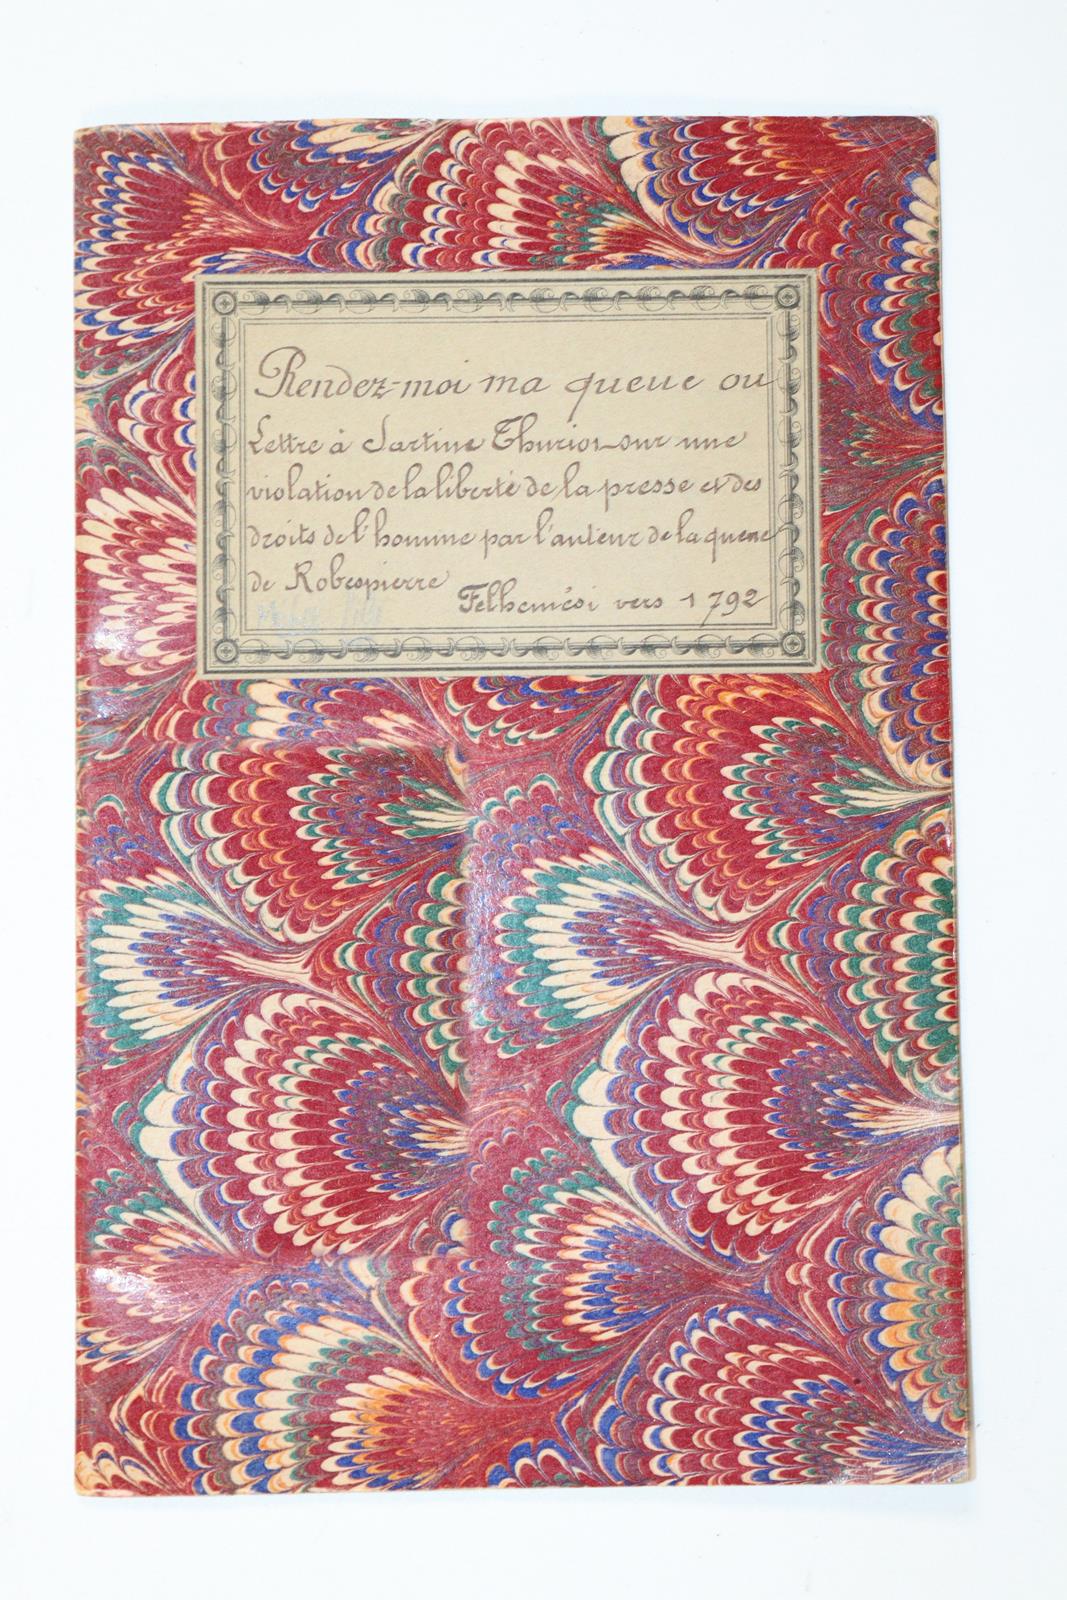 Rendez-moi ma queue ou
Lettre à Sartine Thuriot sur une
violation de la liberté de la presse et des
droits de l'homme par l'auteur de la queue
de Robespierre
Felhemési vers 1792